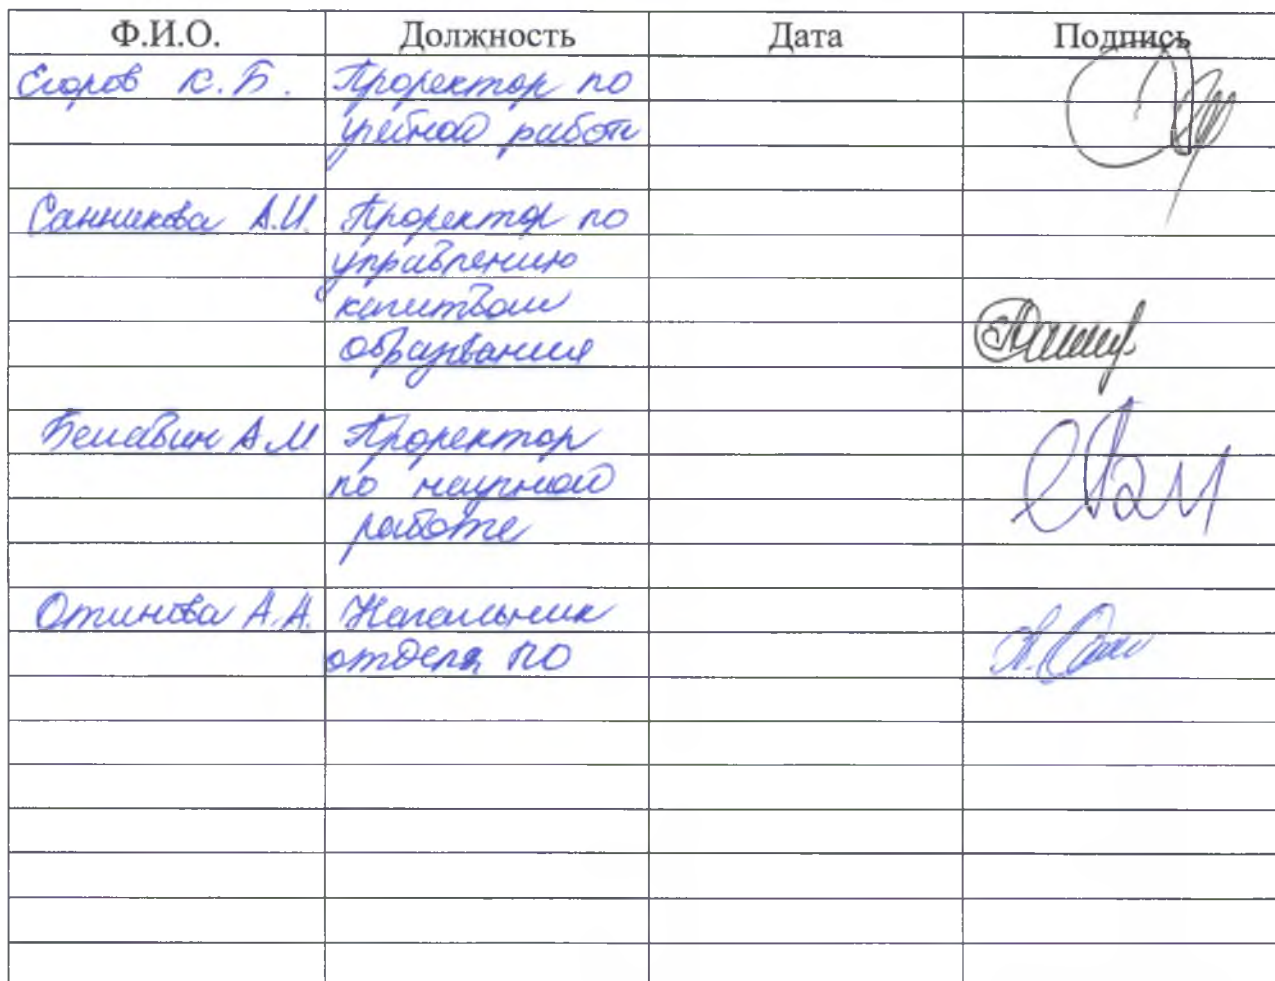 Ф.И.О. Должность Дата Подпись
Егоров К.Б. Проректор по
учебной работе
Санникова А.И. Проректор по
управлению
качеством
образования
Белавин А.М. Проректор
по научной
работе
Отинова А.А. Начальник
отдела ПО